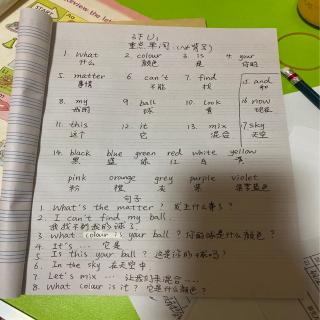 3下U1
重点单词(14背6)
1. what 2. colour 3. is 4. your
什么 颜色 是 你的
5. matter 6. can't 7. find 15. and
事情 不能 找 和
8. my 9. ball 10. look 16. now
我的 球 看 现在
11. this 12. it 13. mix 17. sky
这个 它 混合 天空
14. black blue green red white yellow
黑 蓝 绿 红 白 黄
pink orange grey purple violet
粉 橙 灰 紫
句子
1. What's the matter? 发生什么事了?
2. I can't find my ball.
我找不到我的球了.
3. What colour is your ball? 你的球是什么颜色?
4. It's ... 它是
5. Is this your ball? 这是你的球吗?
6. In the sky 在天空中
7. Let's mix ... 让我们来混合....
8. What colour is it? 它是什么颜色?